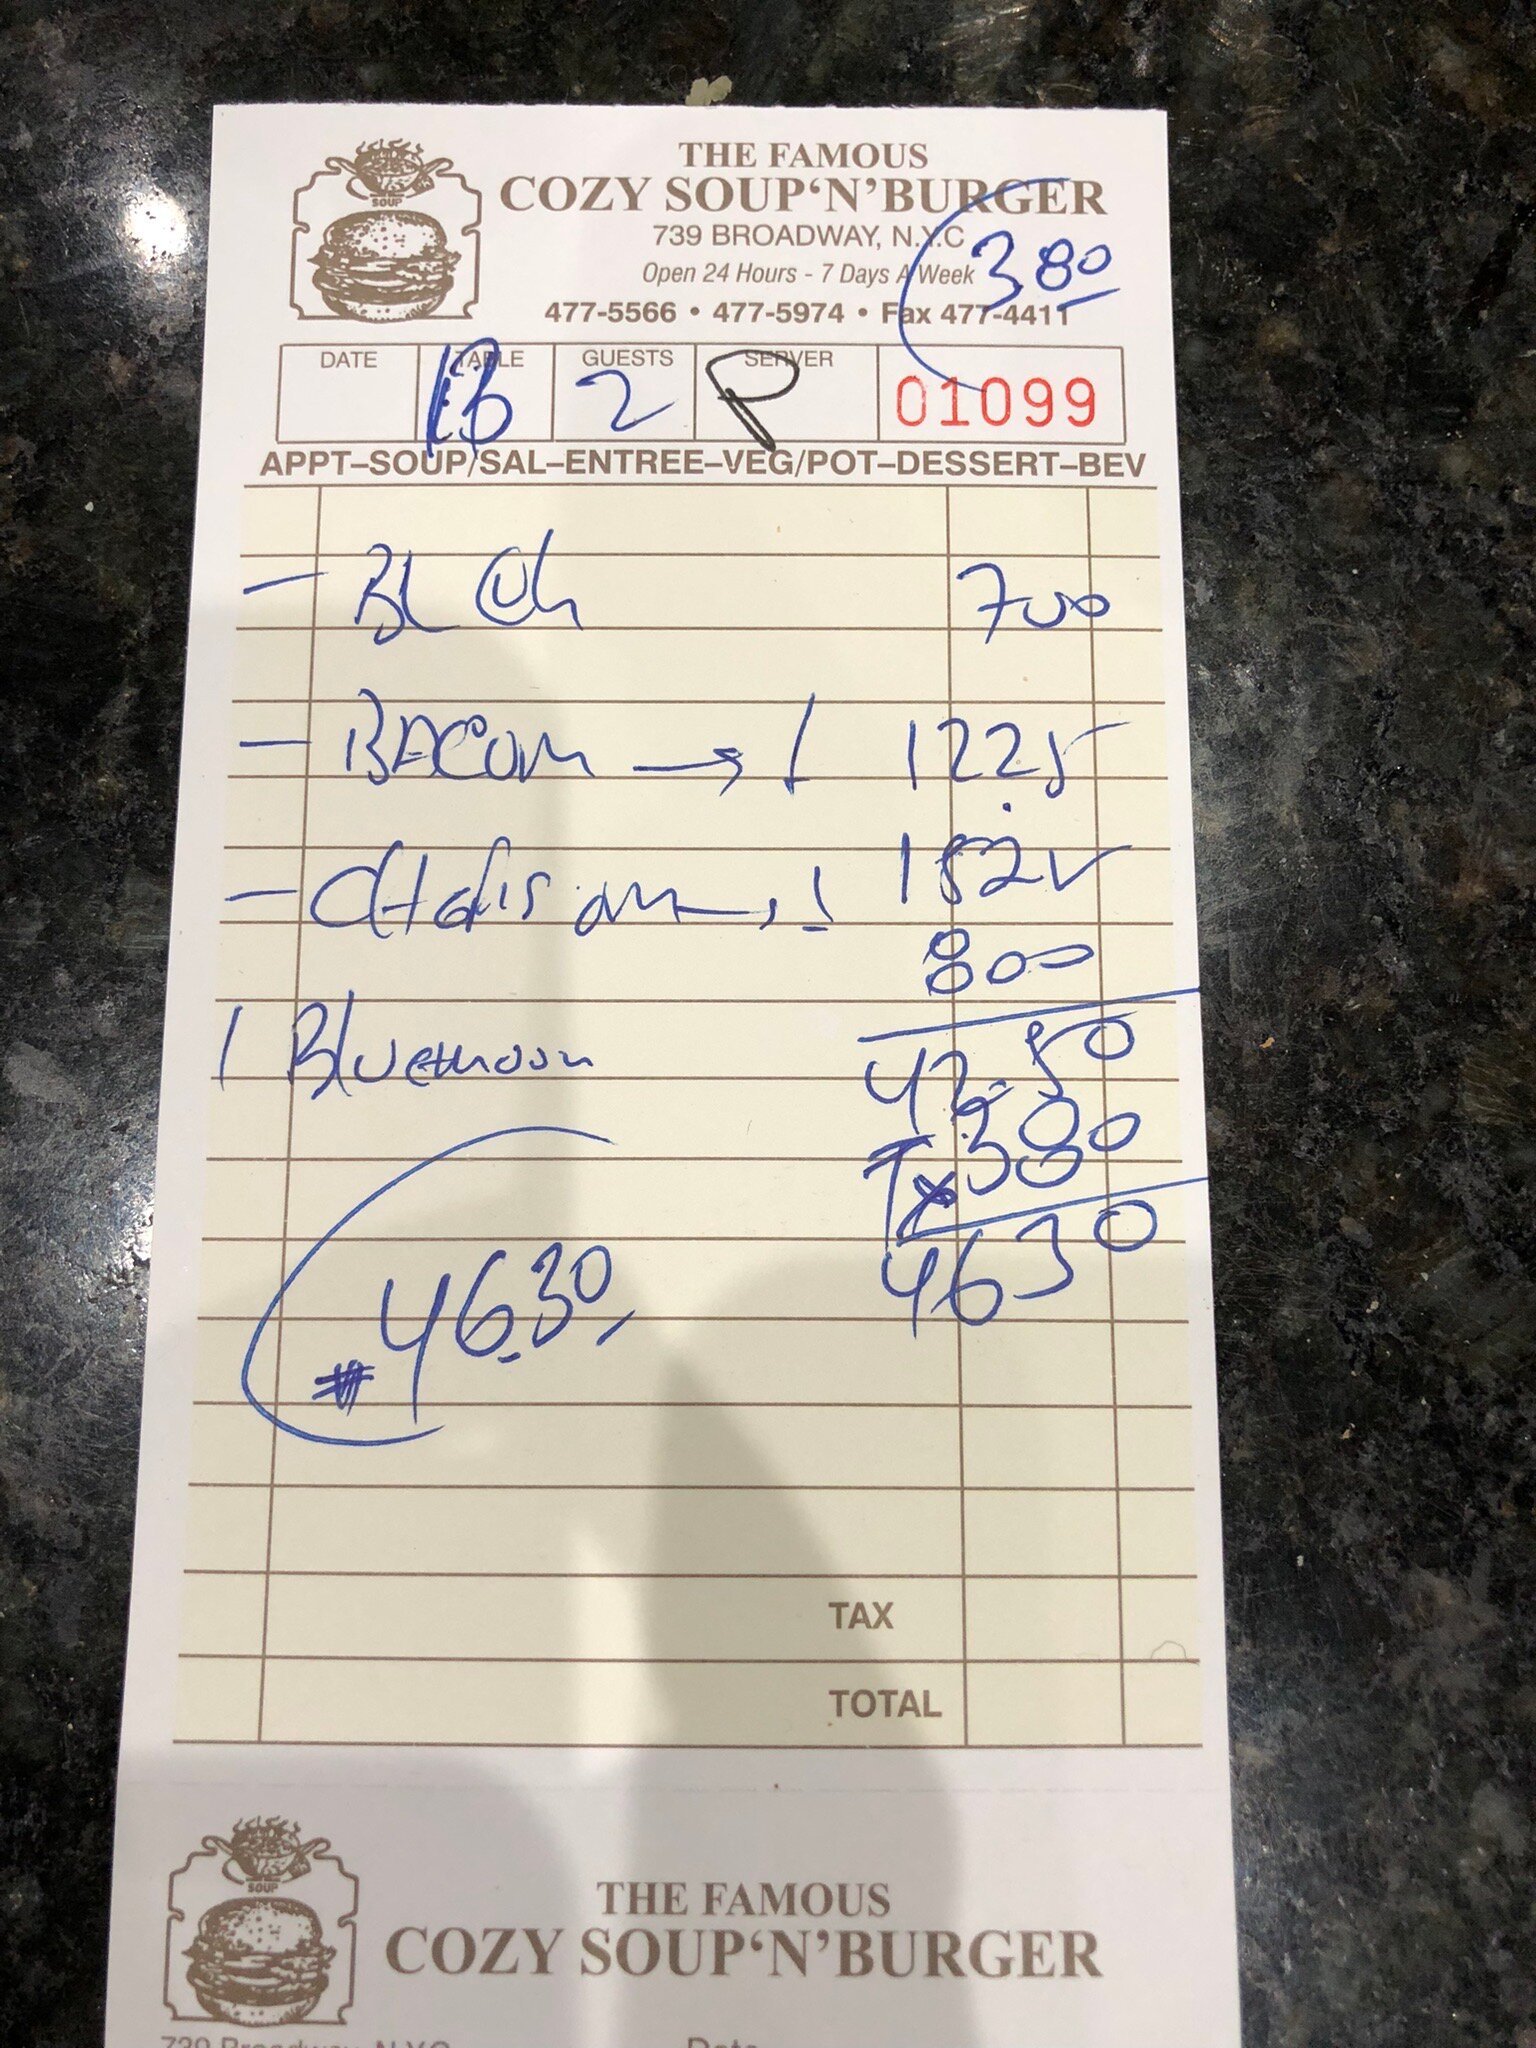 THE FAMOUS
COZY SOUP'N'BURGER
739 BROADWAY, N.Y.C
Open 24 Hours - 7 Days A Week
477-5566 • 477-5974 • Fax 477-4411
3 80
DATE TABLE GUESTS SERVER
13 2 P 01099
APPT–SOUP/SAL–ENTREE–VEG/POT–DESSERT–BEV
700
- BACOM → 1 1225
1 1525
800
1 Bluemoon 42.50
Tx 380
4630
#46.30
TAX
TOTAL
SOUP
THE FAMOUS
COZY SOUP'N'BURGER
739 Broadway, N.Y.C. Date